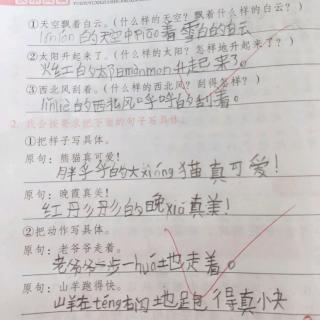 ①天空飘着白云。(什么样的天空?飘着什么样的白云?)
lánlán的天空中piāo着雪白的白云
②太阳升起来了。(什么样的太阳?怎样地升起来了?)
火红的太阳mànmàn升起来了。
③西北风刮着。(什么样的西北风?刮得怎样?)
的西北风呼呼的刮着。
2. 我会按要求把下面的句子写具体。
①把样子写具体。
原句:熊猫真可爱!
胖乎乎的大xióng猫真可爱!
原句:晚霞真美!
红彤彤的晚xiá真美!
②把动作写具体。
原句:老爷爷走着。
老爷爷一步一huá地走着。
原句:山羊跑得快。
山羊在téng
地跑得真快